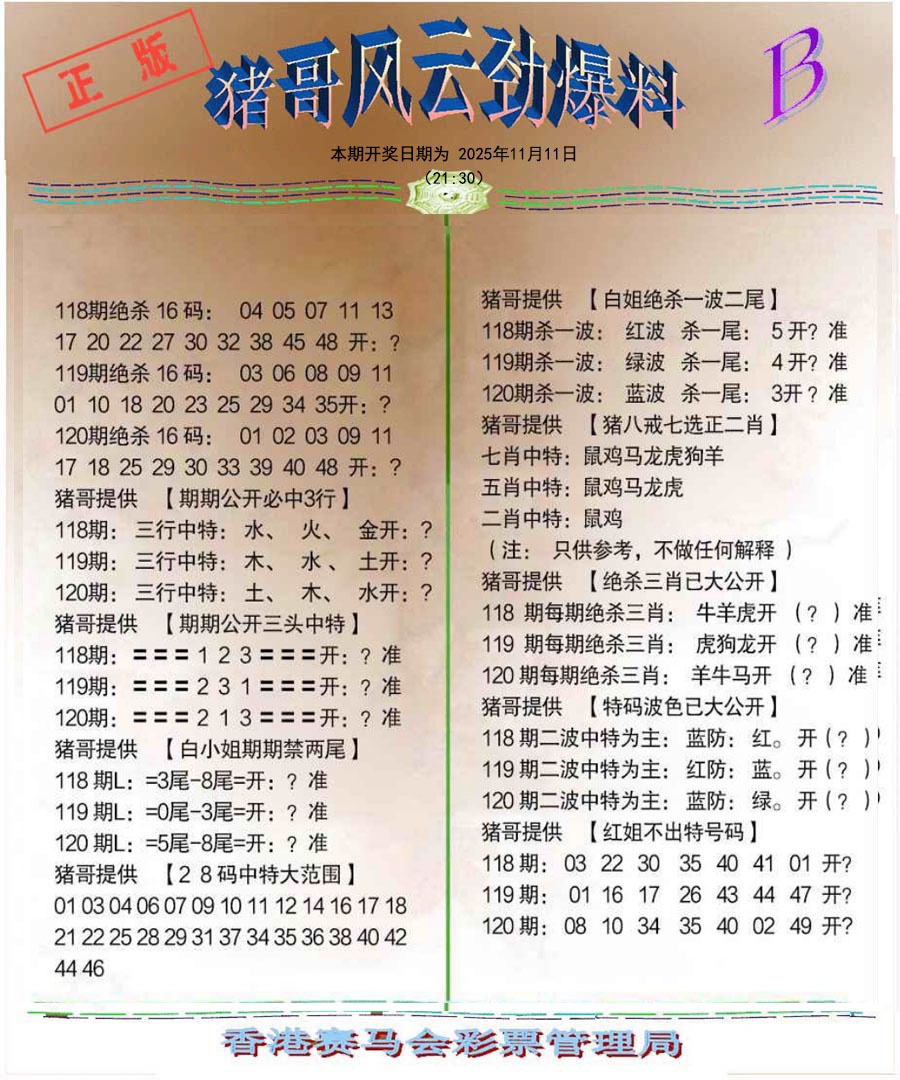 正版
猪哥风云劲爆料
B
本期开奖日期为 2025年11月11日
(21:30)
118期绝杀 16 码： 04 05 07 11 13
17 20 22 27 30 32 38 45 48 开：?
119期绝杀 16 码： 03 06 08 09 11
01 10 18 20 23 25 29 34 35开：?
120期绝杀 16 码： 01 02 03 09 11
17 18 25 29 30 33 39 40 48 开：?
猪哥提供 【期期公开必中3行】
118期： 三行中特： 水、 火、 金开：?
119期： 三行中特： 木、 水、 土开：?
120期： 三行中特： 土、 木、 水开：?
猪哥提供 【期期公开三头中特】
118期：〓〓〓 1 2 3 〓〓〓开：? 准
119期：〓〓〓 2 3 1 〓〓〓开：? 准
120期：〓〓〓 2 1 3 〓〓〓开：? 准
猪哥提供 【白小姐期期禁两尾】
118 期L：=3尾-8尾=开：? 准
119 期L：=0尾-3尾=开：? 准
120 期L：=5尾-8尾=开：? 准
猪哥提供 【2 8 码中特大范围】
01 03 04 06 07 09 10 11 12 14 16 17 18
21 22 25 28 29 31 37 34 35 36 38 40 42
44 46
猪哥提供 【白姐绝杀一波二尾】
118期杀一波： 红波 杀一尾： 5 开? 准
119期杀一波： 绿波 杀一尾： 4 开? 准
120期杀一波： 蓝波 杀一尾： 3开 ? 准
猪哥提供 【猪八戒七选正二肖】
七肖中特：鼠鸡马龙虎狗羊
五肖中特：鼠鸡马龙虎
二肖中特：鼠鸡
（注： 只供参考，不做任何解释 ）
猪哥提供 【绝杀三肖已大公开】
118 期每期绝杀三肖： 牛羊虎开 （? ）准
119 期每期绝杀三肖： 虎狗龙开 （? ）准
120 期每期绝杀三肖： 羊牛马开 （? ）准
猪哥提供 【特码波色已大公开】
118 期二波中特为主： 蓝防： 红。 开（? ）
119 期二波中特为主： 红防： 蓝。 开（? ）
120 期二波中特为主： 蓝防： 绿。 开（? ）
猪哥提供 【红姐不出特号码】
118 期： 03 22 30 35 40 41 01 开?
119 期： 01 16 17 26 43 44 47 开?
120 期： 08 10 34 35 40 02 49 开?
香港赛马会彩票管理局